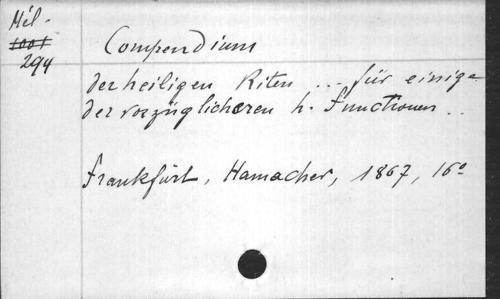 Mél.
1001
294
Compendium
der heiligen Riten ... für einige
der vorzüglicheren h. Functionen ..
Frankfurt, Hamacher, 1867, 16°